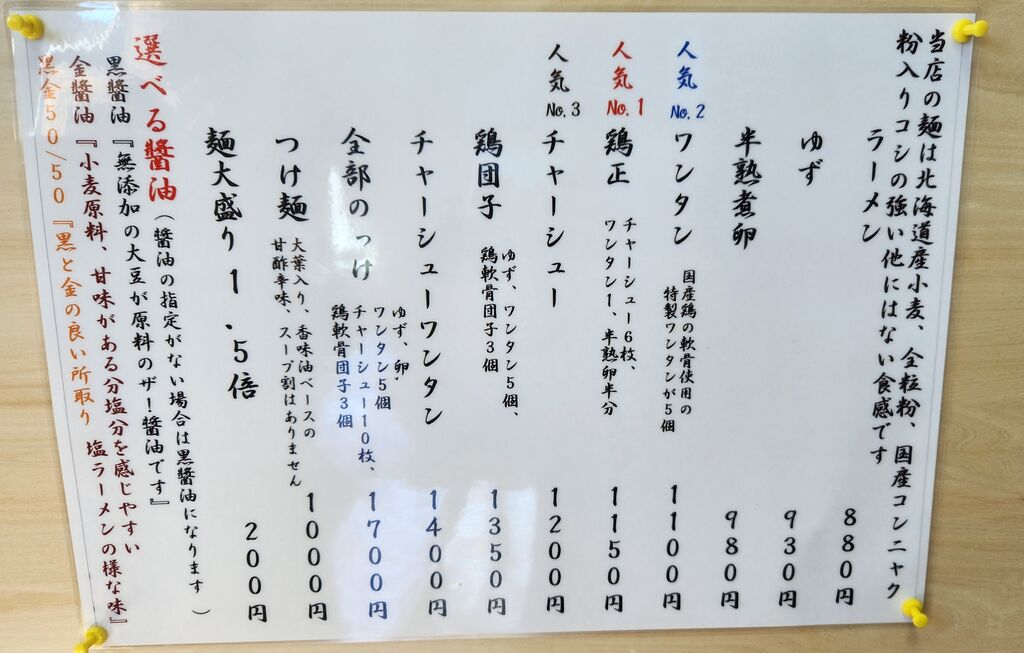 当店の麺は北海道産小麦、全粒粉、国産コンニャク
粉入りコシの強い他にはない食感です
ラーメン 880円
ゆず 930円
半熟煮卵 980円
人気No.2 ワンタン 国産鶏の軟骨使用の
特製ワンタンが5個 1100円
人気No.1 鶏正 チャーシュー6枚、
ワンタン1、半熟卵半分 1150円
人気No.3 チャーシュー 1200円
鶏団子 ゆず、ワンタン5個、
鶏軟骨団子3個 1350円
チャーシューワンタン 1400円
全部のっけ ゆず、卵、
ワンタン5個
チャーシュー10枚、
鶏軟骨団子3個 1700円
つけ麺 大葉入り、香味油ベースの
甘酢辛味、スープ割はありません 1000円
麺大盛り1.5倍 200円
選べる醬油(醬油の指定がない場合は黒醬油になります)
黒醬油『無添加の大豆が原料のザ!醬油です』
金醬油『小麦原料、甘味がある分塩分を感じやすい
塩ラーメンの様な味』
黒金50/50『黒と金の良い所取り